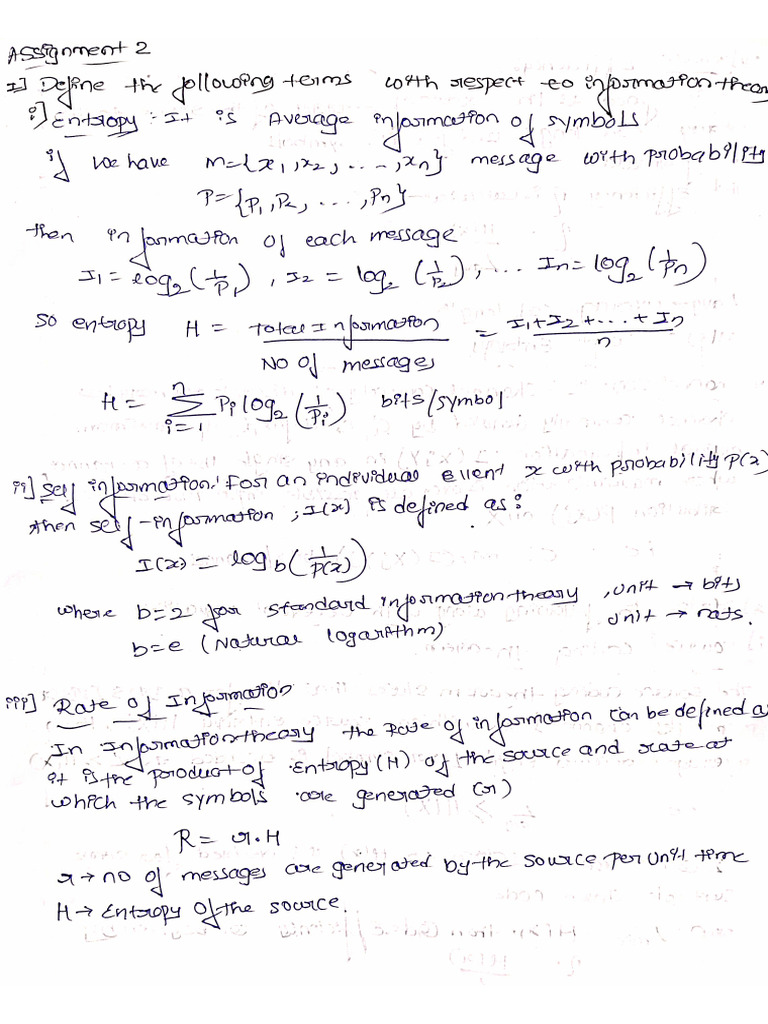 Assignment 2
1] Define the following terms with respect to information theory
i] Entropy : It is Average information of symbols
if we have m={x1,x2,...,xn} message with probability
P={P1,P2,...,Pn}
then information of each message
I1=log2(1/P1), I2=log2(1/P2),... In=log2(1/Pn)
so entropy H = Total Information / No of messages = I1+I2+...+In / n
H = Σ_{i=1}^{n} Pi log2(1/Pi) bits/symbol
ii] self information: For an individual event x with probability P(x)
then self-information, I(x) is defined as:
I(x) = log_b(1/P(x))
where b=2 for standard information theory, unit → bits
b=e (Natural logarithm) unit → nats.
iii] Rate of Information
In Information theory the Rate of information can be defined as
it is the product of Entropy(H) of the source and rate at
which the symbols are generated (r)
R= r.H
r → no of messages are generated by the source per unit time
H → Entropy of the source.